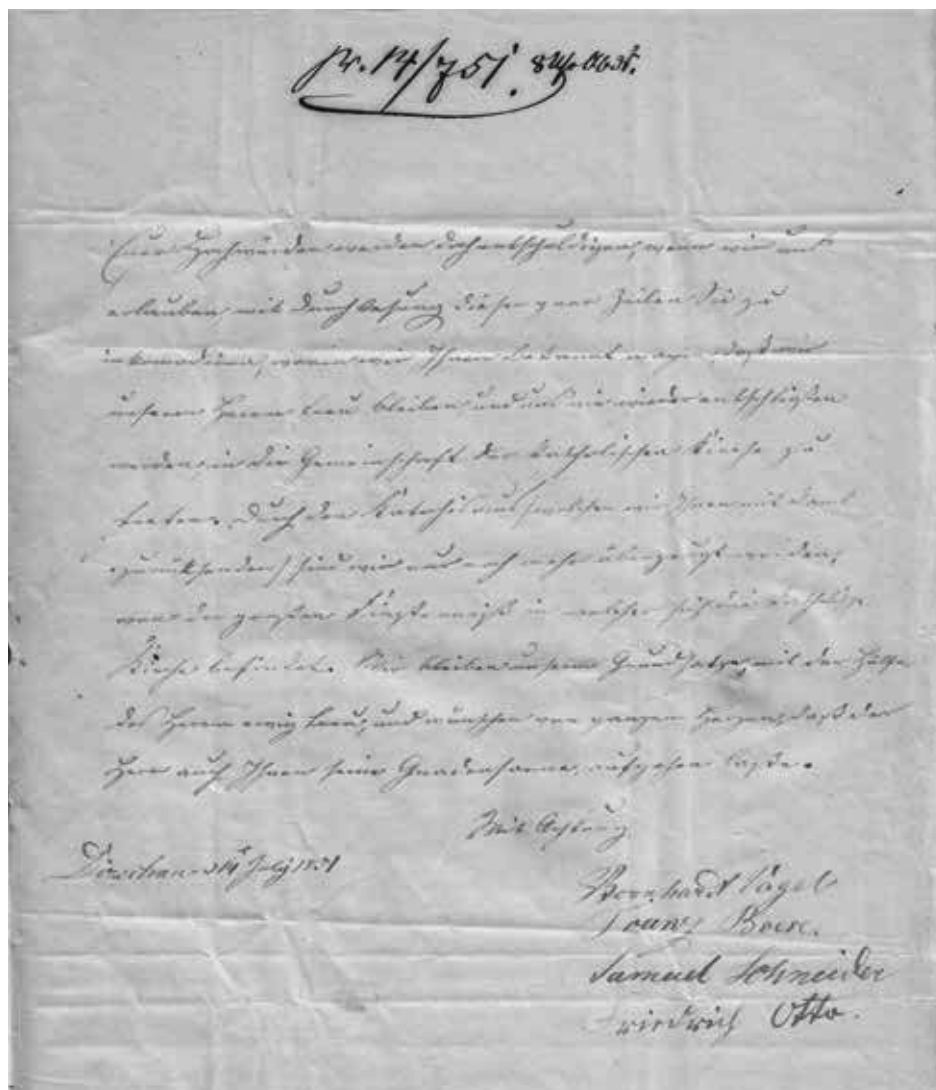 pr. 14/7 51. 8 Uhr Abds.
Euer Hochwürden werden doch entschuldigen, wenn wir uns
erlauben, mit Durchlesung dieser paar Zeilen Sie zu
inkomodiren, worin wir Ihnen bekannt daß wir
unserem Herrn treu bleiben und uns nie wieder entschließen
werden, in die Gemeinschaft der katholischen Kirche zu
treten. Durch den Katechismus (welchen wir Ihnen mit Dank
zurücksenden) sind wir nur noch mehr überzeugt worden,
von der großen Finsterniß in welcher sich die
Kirche befindet. Wir bleiben unserm Grundsatze, mit der Hülfe
des Herrn ewig treu, und wünschen von ganzem Herzen, daß der
Herr auch Ihnen seine Gnadensonne aufgehen lasse.
Mit Achtung
14 July 1851
Bernhardt Vogel
Samuel Schneider
Friedrich Otto.